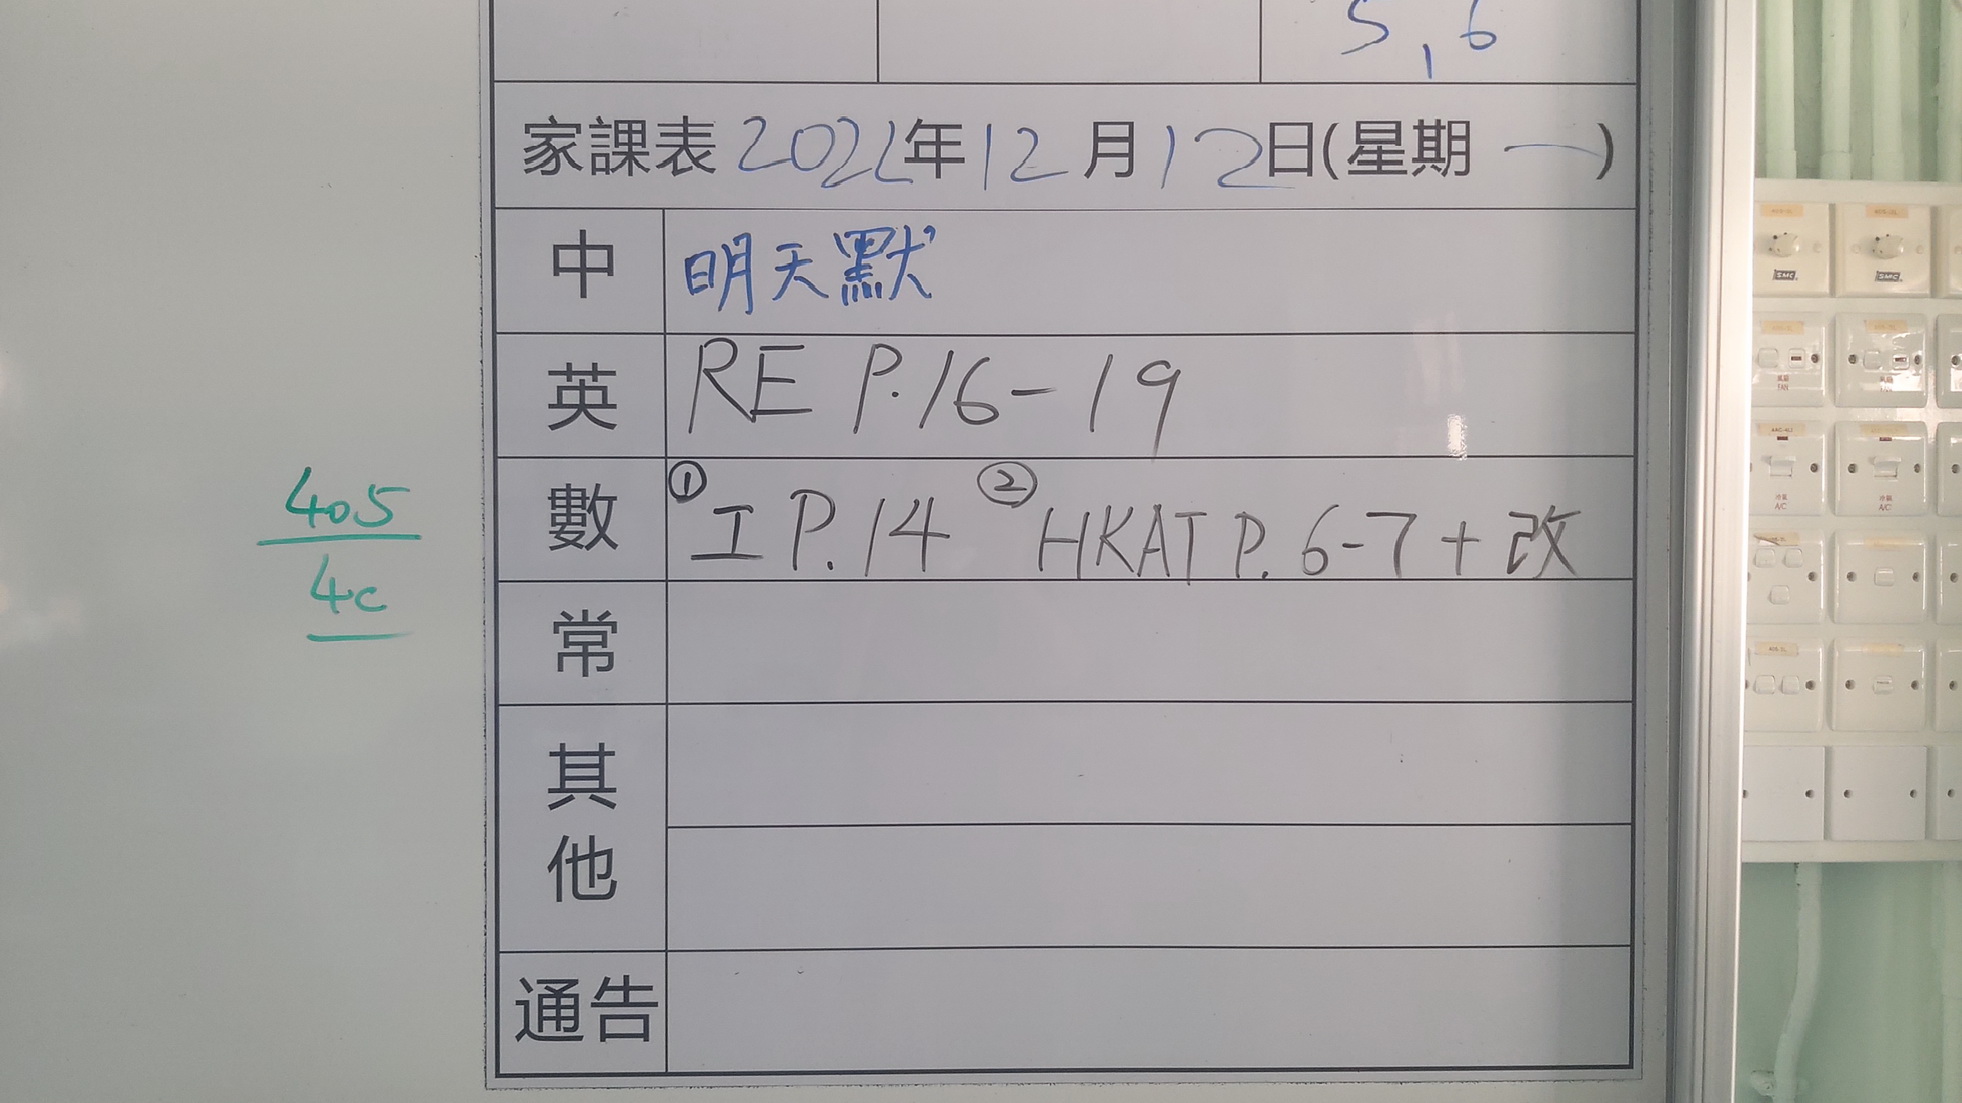 5,6
家課表 2022年12月12日(星期一)
中 明天默
英 RE P.16-19
數 ①工 P.14 ②HKAT P.6-7+改
405
4C
常
其他
通告
FAN
FAN
A/C
A/C